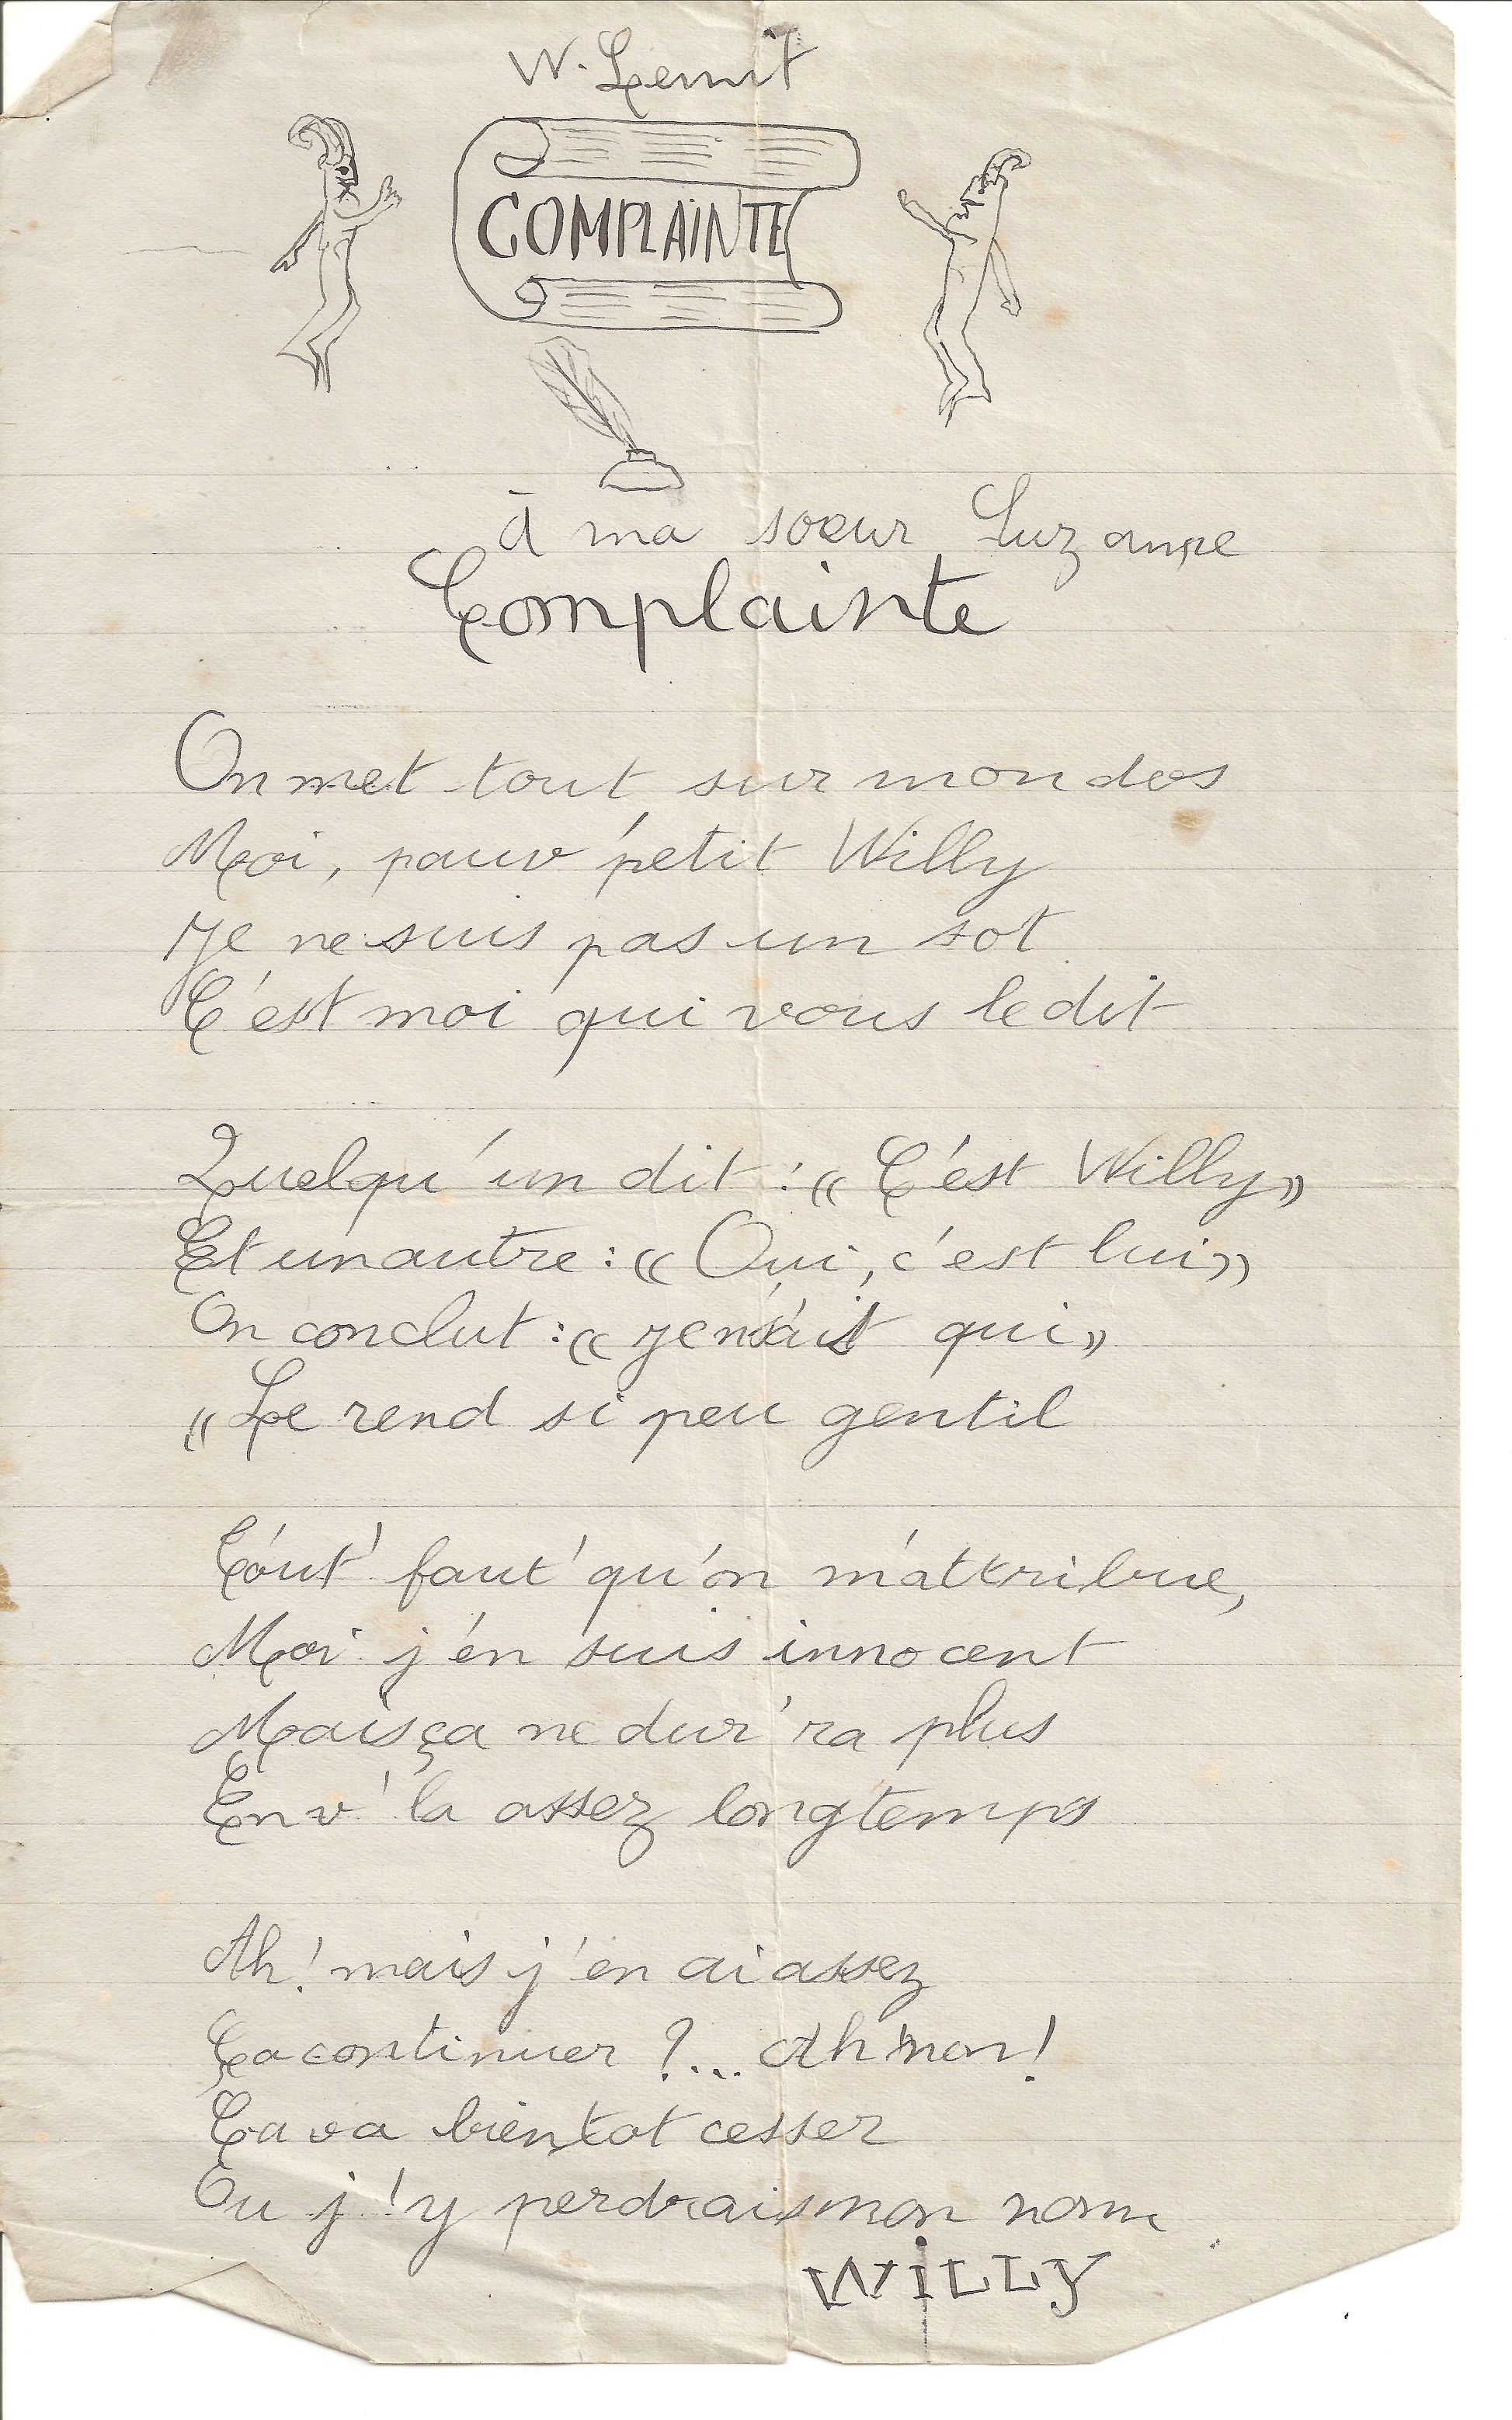 W. Lemit
COMPLAINTE
à ma soeur Suzanne
Complainte
On met tout sur mon dos
Moi, pauv' petit Willy
Je ne suis pas un sot
C'est moi qui vous le dit
Quelqu'un dit : « C'est Willy »
Et un autre : « Oui, c'est lui »
On conclut : « je n'sait qui »
« Le rend si peu gentil
Tout' faut' qu'on m'attribue,
Moi j'en suis innocent
Mais ça ne dur'ra plus
En v'la assez longtemps
Ah! mais j'en ai assez
Ça continuer ?... Ah! non!
Ça va bientot cesser
Ou j'y perdrais mon nom
WiLLY